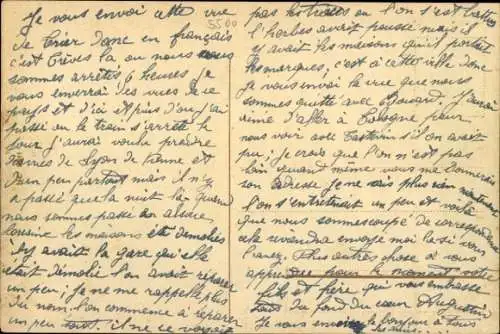 Je vous envoi cette vue
de Trier donc en français
5500
c'est Trèves la ou nous nous
sommes arrêtés 6 heures je
vous enverrai des vues de ce
pays et d'ici et puis d'ou j'ai
passé ou le train s'arrette le
jour j'aurai voulu prendre
de Lyon de Vienne et
d'un peu partout mais il n'y
a passé que la nuit la quand
nous sommes passé de alsace
loraine les maisons démolies
il y avait la gare qui elle
etait démolie l'on avait réparer
un peu; je ne me rappelle plus
du nom. l'on commence à réparer
un peu tout, il ne ce voyait
pas les trous ou l'on s'est battus
l'herbes avait poussé mais il
y avait les maisons qui portait
les marques, c'est à cette ville donc
je vous envoi la vue que nous
sommes quitté avec Edouard. J'aurai
aimé d'aller à Cologne pour
nous voir avec si l'on avait
pu; je crois que l'on n'est pas
loin quand même vous me donnerai
son adresse je ne sais plus rien maintenant
l'on s'entretenait un peu et voilà
que nous sommes coupé de correspondre
cela reviendra envoyé moi la si vous
l'avez. Plus autres chose à vous
apprendre pour le moment votre
fils et frère qui vous embrasse
tous du fond du cœur Augustin
Je vous envoi le bonjour à tous